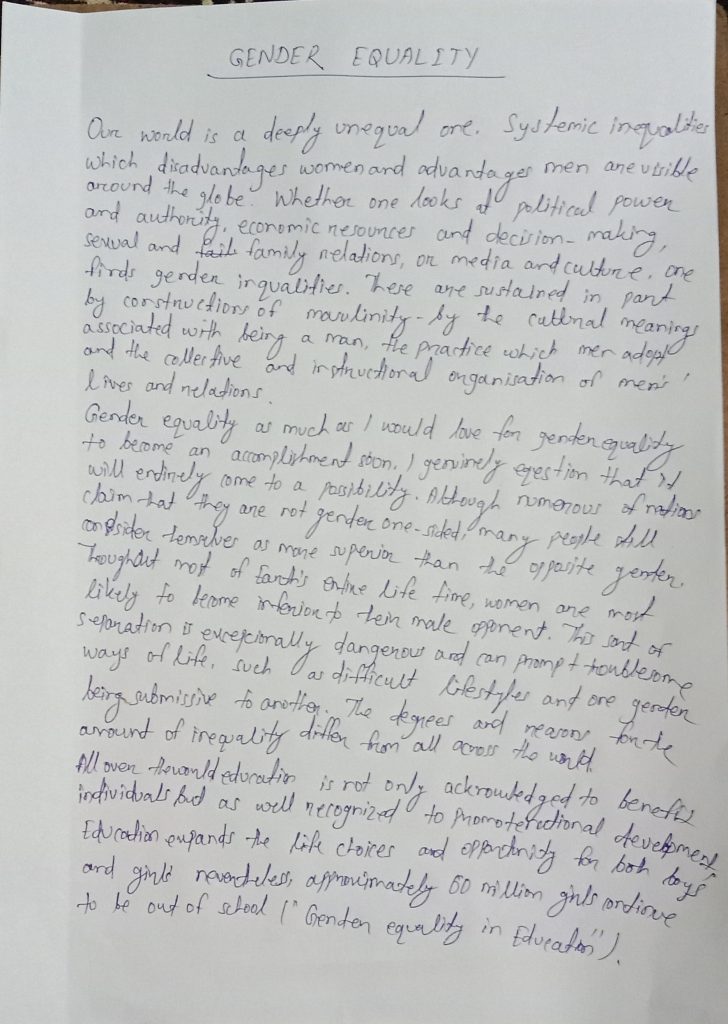 GENDER EQUALITY
Our world is a deeply unequal one. Systemic inequalities
which disadvantages women and advantages men are visible
around the globe. Whether one looks at political power
and authority, economic resources and decision-making,
sexual and family relations, or media and culture, one
finds gender inqualities. These are sustained in part
by constructions of masulinity - by the cultural meanings
associated with being a man, the practice which men adopt
and the collective and instructional organisation of men's
lives and relations.
Gender equality as much as I would love for gender equality
to become an accomplishment soon, I genuinely qestion that it
will entirely come to a possibility. Although numerous of nations
claim that they are not gender one-sided, many people still
consider temselves as more superior than the opposite gender.
Thoughout most of Earth's entire life time, women are most
likely to become inferior to tein male opponent. This sort of
separation is excepcionally dangerous and can prompt troublesome
ways of life, such as difficult lifestyles and one gender
being submissive to another. The degrees and reasons for the
amount of inequality differ from all across the world.
All over the world education is not only acknowledged to benefit
individuals but as well recognized to promote national development.
Education expands the life choices and opportunity for both boys
and girls nevertheless, approximately 60 million girls continue
to be out of school ("Gender equality in Education").